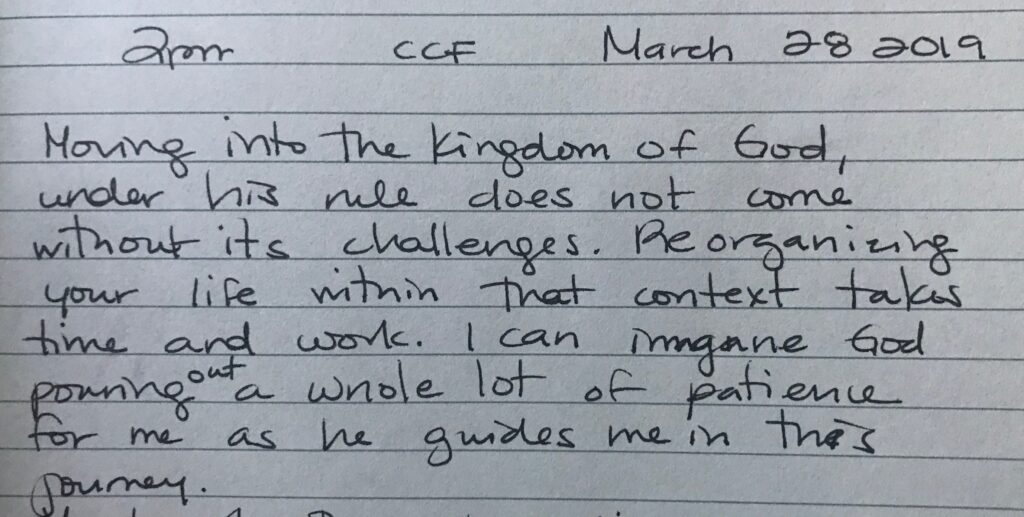 2pm CCF March 28 2019
Moving into the kingdom of God,
under his rule does not come
without its challenges. Reorganizing
your life within that context takes
time and work. I can imagane God
pouring out a whole lot of patience
for me as he guides me in this
journey.